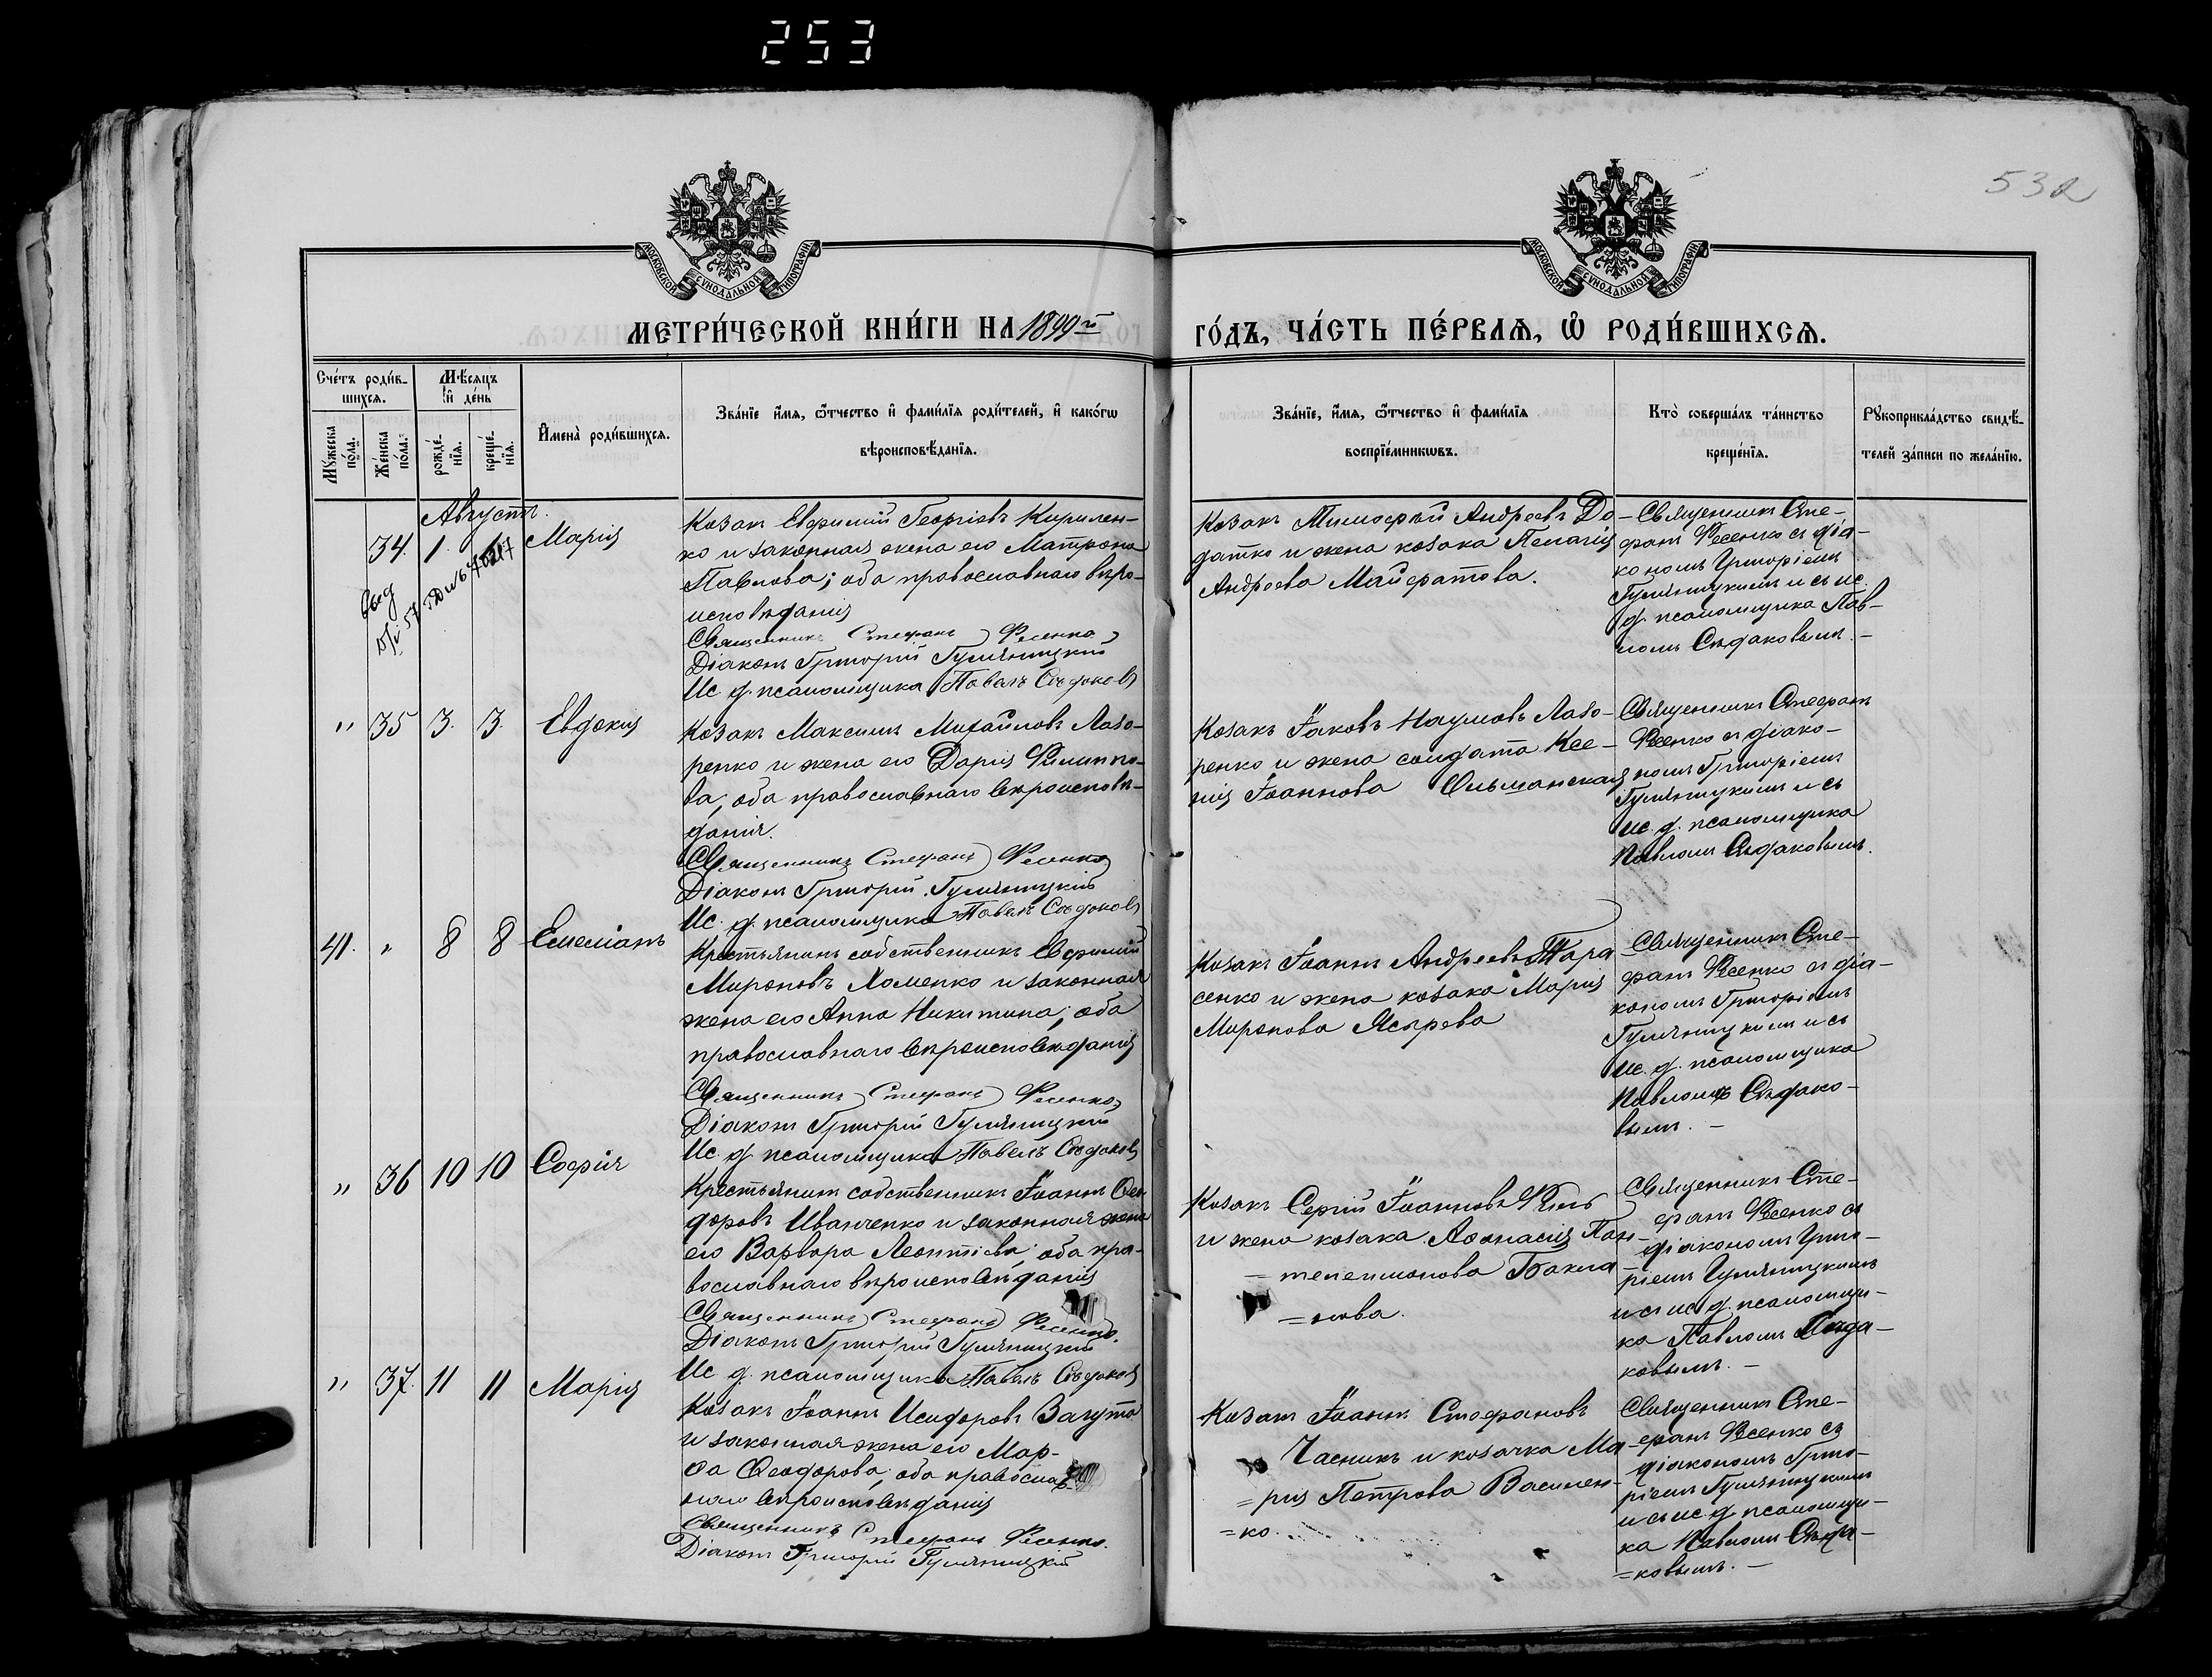 253
532
МОСКОВСКОЙ СѴНОДАЛЬНОЙ ТИПОГРАФІИ
МОСКОВСКОЙ СѴНОДАЛЬНОЙ ТИПОГРАФІИ
МЕТРИ́ЧЕСКОЙ КНИ́ГИ НА 1899й
ГО́ДЪ, ЧА́СТЬ ПЕ́РВАѦ, Ѡ҆ РОДИ́ВШИХСѦ.
Сче́тъ роди́в-
шихся.
Мѣ́сяцъ
и҆ де́нь
Мꙋ́жеска
по́ла.
Же́нска
по́ла.
рожде́-
нїя.
креще́-
нїя.
И҆мена̀ роди́вшихся.
Зва́нїе и҆́мя, ѻ҆́тчество и҆ фами́лїя роди́телей, и҆ како́гѡ
вѣроисповѣ́данїя.
Зва́нїе, и҆́мя, ѻ҆́тчество и҆ фами́лїя
воспрїе́мникѡвъ.
Кто̀ соверша́лъ та́инство
креще́нїя.
Рꙋкоприкла́дство свидѣ́-
телей за́писи по жела́нїю.
Августъ.
34. 1. 1. Марія
Козакъ Евфимій Георгіевъ Кирилен-
ко и законная жена его Матрона
Павлова; оба православнаго вѣро-
исповѣданія
Священникъ Стефанъ Фесенко
Діаконъ Григорій Гуляницкій
Ис. д. псаломщика Павелъ Сѣдаковъ
Козакъ Тимофей Андреевъ До-
датко и жена козака Пелагія
Андреева
Священникъ Сте-
фанъ Фесенко съ діа-
кономъ Григоріемъ
Гуляницкимъ и съ ис.
д. псаломщика Пав-
ломъ Сѣдаковымъ. —
" 35 3. 3. Евдокія
Козакъ Максимъ Михайловъ Лазо-
ренко и жена его Дарія Филиппо-
ва; оба православнаго вѣроисповѣ-
данія.
Священникъ Стефанъ Фесенко
Діаконъ Григорій Гуляницкій
Ис. д. псаломщика Павелъ Сѣдаковъ
Козакъ Іаковъ Наумовъ Лазо-
ренко и жена солдата Ксе-
нія Іоаннова Ольшанская
Священникъ Стефанъ
Фесенко съ діако-
номъ Григоріемъ
Гуляницкимъ и съ
ис. д. псаломщика
Павломъ Сѣдаковымъ.
41. " 8 8 Емеліанъ
Крестьянинъ собственникъ Евфимій
Мироновъ Хоменко и законная
жена его Анна Никитина; оба
православнаго вѣроисповѣданія
Священникъ Стефанъ Фесенко
Діаконъ Григорій Гуляницкій
Ис. д. псаломщика Павелъ Сѣдаковъ
Козакъ Іоаннъ Андреевъ Тара
сенко и жена козака Марія
Миронова Ясырева
Священникъ Сте-
фанъ Фесенко съ діа-
кономъ Григоріемъ
Гуляницкимъ и съ
ис. д. псаломщика
Павломъ Сѣдако-
вымъ. —
" 36 10 10 Софія
Крестьянинъ собственникъ Іоаннъ Ѳео-
доровъ Иванченко и законная жена
его Варвара Леонтіева; оба пра-
вославнаго вѣроисповѣданія
Священникъ Стефанъ Фесенко.
Діаконъ Григорій Гуляницкій
Ис. д. псаломщика Павелъ Сѣдаковъ
Козакъ Сергій Іоанновъ
и жена козака Аѳанасія Пан-
= телеимонова Бакла
= нова.
Священникъ Сте-
фанъ Фесенко съ
діакономъ Григо-
ріемъ Гуляницкимъ
и съ ис. д. псаломщи-
ка Павломъ Сѣда-
ковымъ. —
" 37. 11 11 Марія
Козакъ Іоаннъ Исидоровъ
и законная жена его Мар-
ѳа Ѳеодорова; оба православ-
наго вѣроисповѣданія
Священникъ Стефанъ Фесенко.
Діаконъ Григорій Гуляницкій
Козакъ Іоаннъ Стефановъ
Часникъ и козачка Ма-
= рія Петрова Василен-
= ко.
Священникъ Сте-
фанъ Фесенко съ
діакономъ Григо-
ріемъ Гуляницкимъ
и съ ис. д. псаломщи-
ка Павломъ Сѣда-
= ковымъ. —